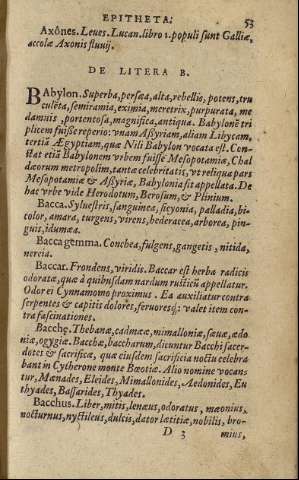 EPITHETA. 53
Axônes. Leues. Lucan. libro 1. populi sunt Galliæ,
accolæ Axonis fluuij.
DE LITERA B.
Babylon. Superba, persæa, alta, rebellis, potens, tru
culēta, semiramia, eximia, meretrix, purpurata, me
damnis, portentosa, magnifica, antiqua. Babylonē tri
plicem fuisse reperio: vnam Assyriam, aliam Libycam,
tertiā Ægyptiam, quæ Nili Babylon vocata est. Con-
stat etiā Babylonem vrbem fuisse Mesopotamiæ, Chal
dæorum metropolim, tantæ celebritatis, vt reliqua pars
Mesopotamiæ & Assyriæ, Babylonia sit appellata. De
hac vrbe vide Herodotum, Berosum, & Plinium.
Bacca. Syluestris, sanguinea, sicyonia, palladia, bi-
color, amara, turgens, virens, hederacea, arborea, pin-
guis, idumæa.
Bacca gemma. Conchea, fulgent, gangetis, nitida,
nereia.
Baccar. Frondens, viridis. Baccar est herba radicis
odoratæ, quæ à quibusdam nardum rusticū appellatur.
Odor ei Cynnamomo proximus. Ea auxiliatur contra
serpentes & capitis dolores, feruoresq;: valet item con-
tra fascinationes.
Bacchę. Thebanæ, cadmææ, mimalloniæ, sæuæ, ædo
niæ, ogygiæ. Bacchæ, baccharum, dicuntur Bacchi sacer-
dotes & sacrificæ, quæ eiusdem sacrificia noctu celebra
bant in Cytherone monte Bœotiæ. Alio nomine vocan
tur, Mænades, Eleides, Mimallonides, Aedonides, Eu
thyades, Bassarides, Thyades.
Bacchus. Liber, mitis, lenæus, odoratus, mæonius,
nocturnus, nyctileus, dulcis, dator lætitiæ, nobilis, bro-
D 3 mius,